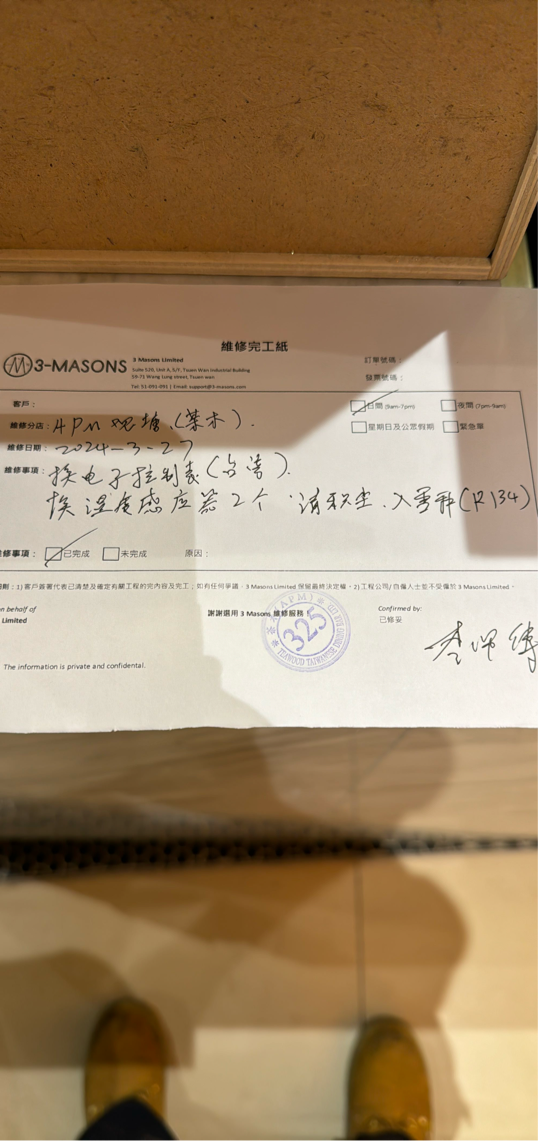 維修完工紙
3-MASONS
3 Masons Limited
Suite 520, Unit A, 5/F, Tsuen Wan Industrial Building
59-71 Wang Lung street, Tsuen-wan
Tel: 51-091-091 | Email: support@3-masons.com
訂單號碼：
發票號碼：
客戶：
日間 (9am-7pm) 夜間 (7pm-9am)
維修分店：APM 观塘 (茶木).
星期日及公眾假期 緊急單
維修日期：2024-3-27
維修事項：换电子控制表
换湿度感应器2个 清积尘. 入雪种(R134)
維修事項： 已完成 未完成 原因：
1) 客戶簽署代表已清楚及確定有關工程的完內容及完工；如有任何爭議，3 Masons Limited 保留最終決定權。2) 工程公司/自僱人士並不受僱於 3 Masons Limited。
n behalf of
Limited
謝謝選用 3 Masons 維修服務
(APM)
325
TEAWOOD TAIWANESE
Confirmed by:
已修妥
The information is private and confidential.